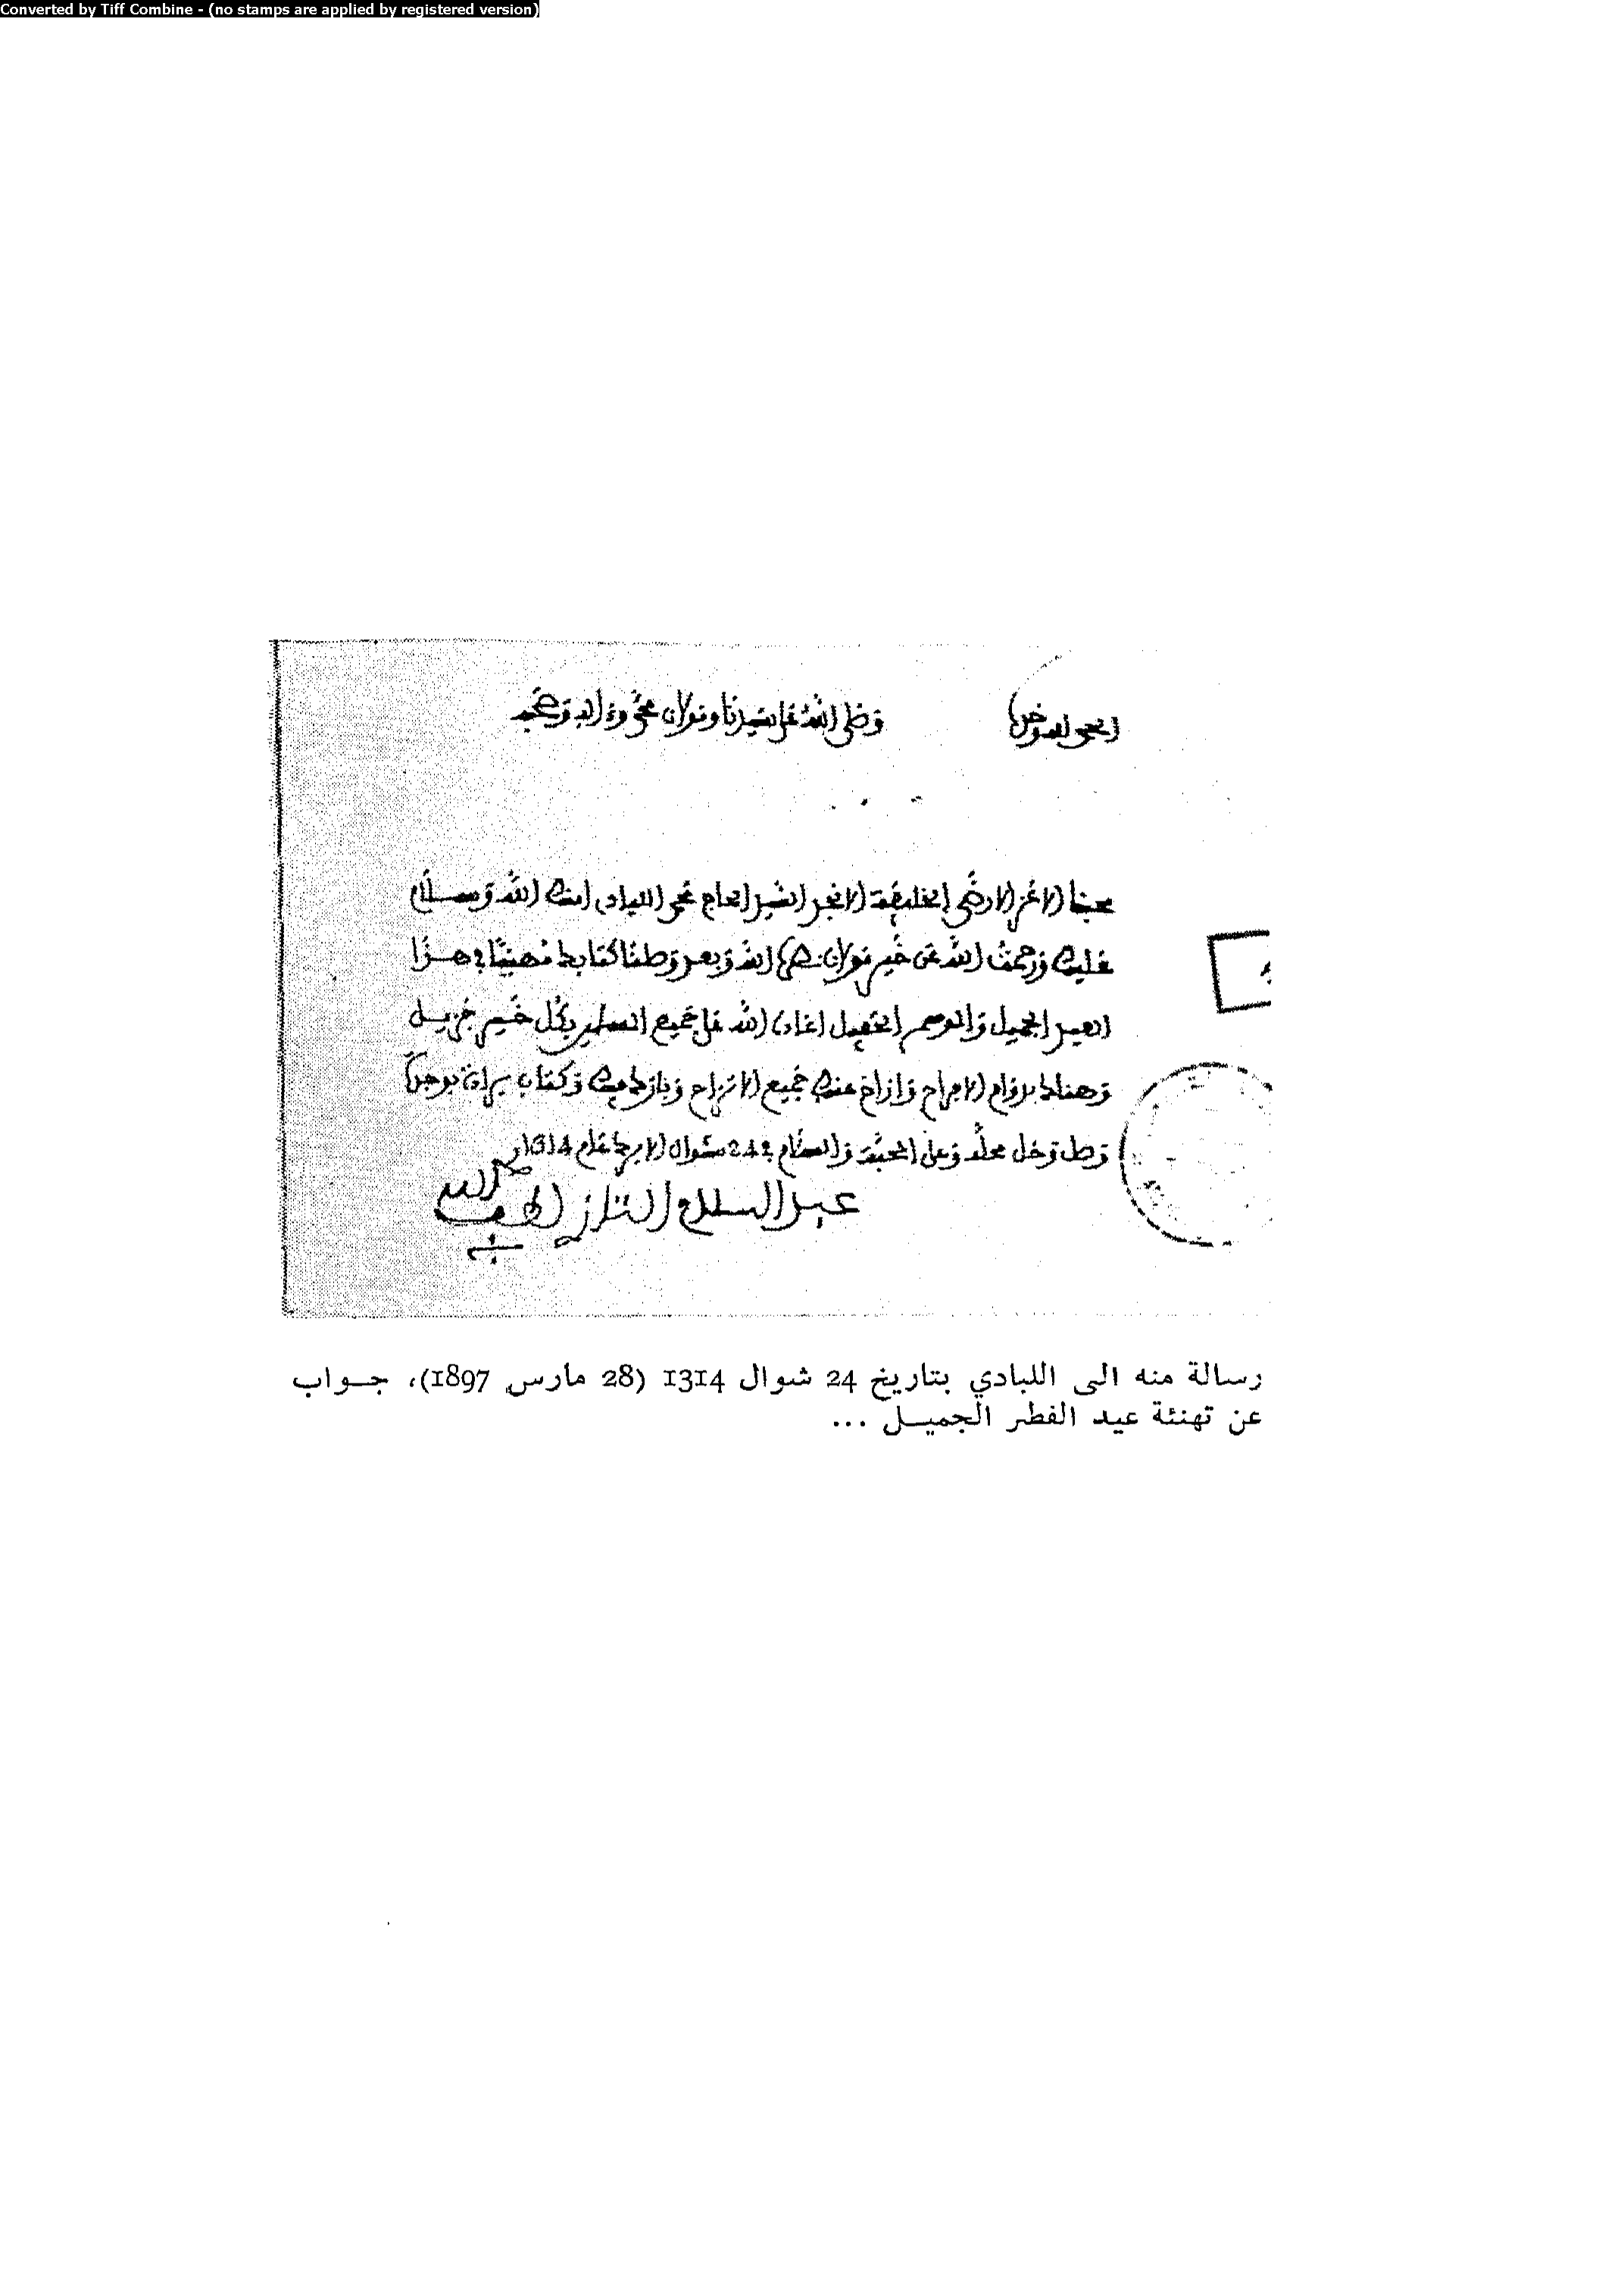 Converted by Tiff Combine - (no stamps are applied by registered version)
الحمد لله وحده وصلى الله على سيدنا ومولانا محمد وءاله وصحبه
محبنا الاعز الارضى الخليفة الانجد السيد الحاج محمد اللبادي امنك الله وسلام
عليك ورحمت الله عن خير مولانا نصره الله وبعد وصلنا كتابك مهنيا في هذا
العيد الجميل والموسم الحفيل اعاده الله على جميع المسلمين بكل خير جزيل
وهناك بدوام الافراح وازاح عنك جميع الاتراح وبارك فيك وكتاب
وصل وحل محله وعلى المحبة والسلام في 24 شوال الابرك عام 1314
عبد السلام التازي لطف الله به
رسالة منه الى اللبادي بتاريخ 24 شوال 1314 (28 مارس 1897)، جـواب
عن تهنئة عيد الفطر الجميـل ...